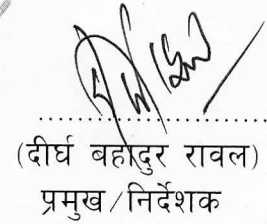 (दीर्घ बहादुर रावल)
प्रमुख/निर्देशक